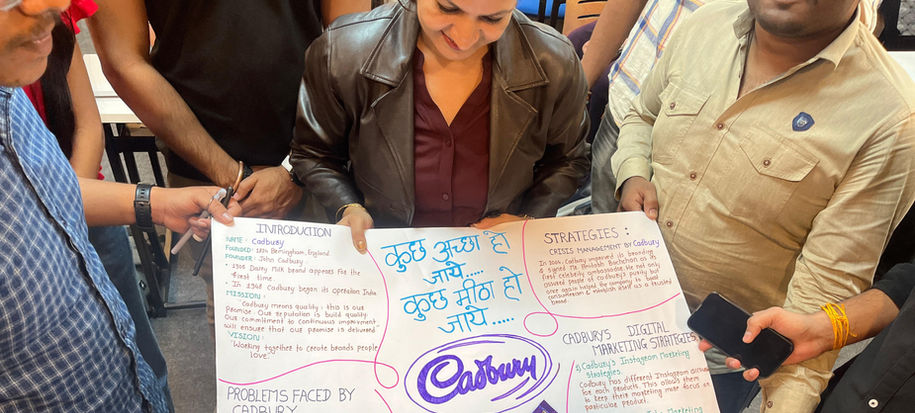 INTRODUCTION
NAME: Cadbury
FOUNDED: 1824 Bermingham, England
FOUNDER: John Cadbury
• 1905 Dairy Milk brand appears for the
first time.
• In 1948 Cadbury began its operation India
MISSION:
"Cadbury means quality: this is our
Promise. Our reputation is build quality.
Our commitment to continuous improvement
will ensure that our promise is delivered.
VISION:
"Working together to create brands people
love."
PROBLEMS FACED BY
CADBURY
कुछ अच्छा हो
जाये.....
कुछ मीठा हो
जाये.....
Cadbury
STRATEGIES:
CRISIS MANAGEMENT BY Cadbury
In 2004, Cadbury improved its branding
& signed Mr Amitabh Bachchan as its
first celebrity ambassador. He not only
assured people of cadbury's purity but
once again helped the company to bond
consumers & establish itself as a trusted
brand
CADBURY'S DIGITAL
MARKETING STRATEGIES
1) Cadbury's Instagram Marketing
Strategies.
Cadbury has different Instagram accounts
for each products. This allows them
to keep their marketing more focus on
particular product.
Marketing